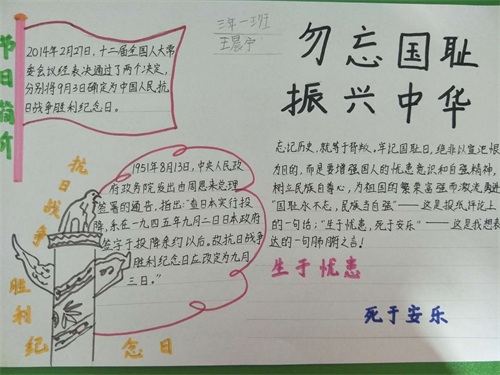 节日简介
2014年2月27日,十二届全国人大常
委会议经表决通过了两个决定,
分别将9月3日确定为中国人民抗
日战争胜利纪念日。
三年一班
王晨宁
勿忘国耻
振兴中华
抗日战争
胜利纪念日
1951年8月13日,中央人民政
府政务院发出由周恩来总理
签署的通告,指出:"查日本实行投
降,系在一九四五年九月二日日本政府
签字于投降条约以后,故抗日战争
胜利纪念日应改定为九月
三日。"
忘记历史,就等于背叛。牢记国耻日,绝非以宣泄恨
为目的,而是要增强国人的忧患意识和自强精神,
树立民族自尊心,为祖国的繁荣富强而激流勇进
"国耻永不忘,民族当自强"——这是报纸评论上
的一句话;"生于忧患,死于安乐"——这是我想表
达的一句肺腑之言!
生于忧患
死于安乐